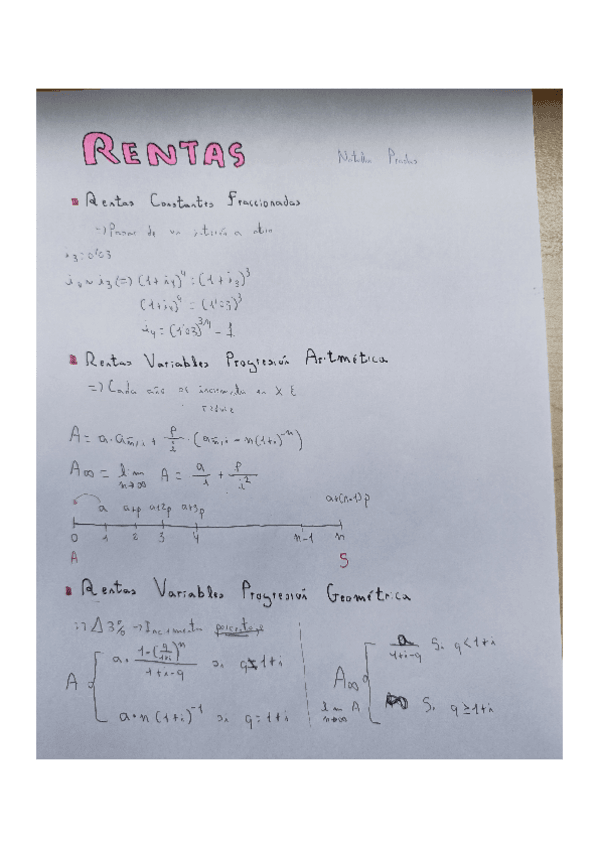 RENTAS
Rentas Constantes Fraccionadas
=> Pasar de un interés a otro
i₃ = 0'03
i₄ ~ i₃ (=) (1+i₄)⁴ = (1+i₃)³
(1+i₄)⁴ = (1'03)³
i₄ = (1'03)^3/4 - 1
Rentas Variables Progresión Aritmética
=> Cada año se incrementa en X €
A = a·a n┐i + p/i · (a n┐i - n(1+i)^-n)
A∞ = lim n→∞ A = a/i + p/i²
a a+p a+2p a+3p a+(n-1)p
0 1 2 3 4 n-1 n
A S
Rentas Variables Progresión Geométrica
Δ 3% → Incremento porcentaje
A { a · (1-(q/1+i)^n)/(1+i-q) si q≠1+i
a·n(1+i)^-1 si q=1+i
A∞ lim n→∞ A { a/(1+i-q) Si q<1+i
∞ Si q≥1+i